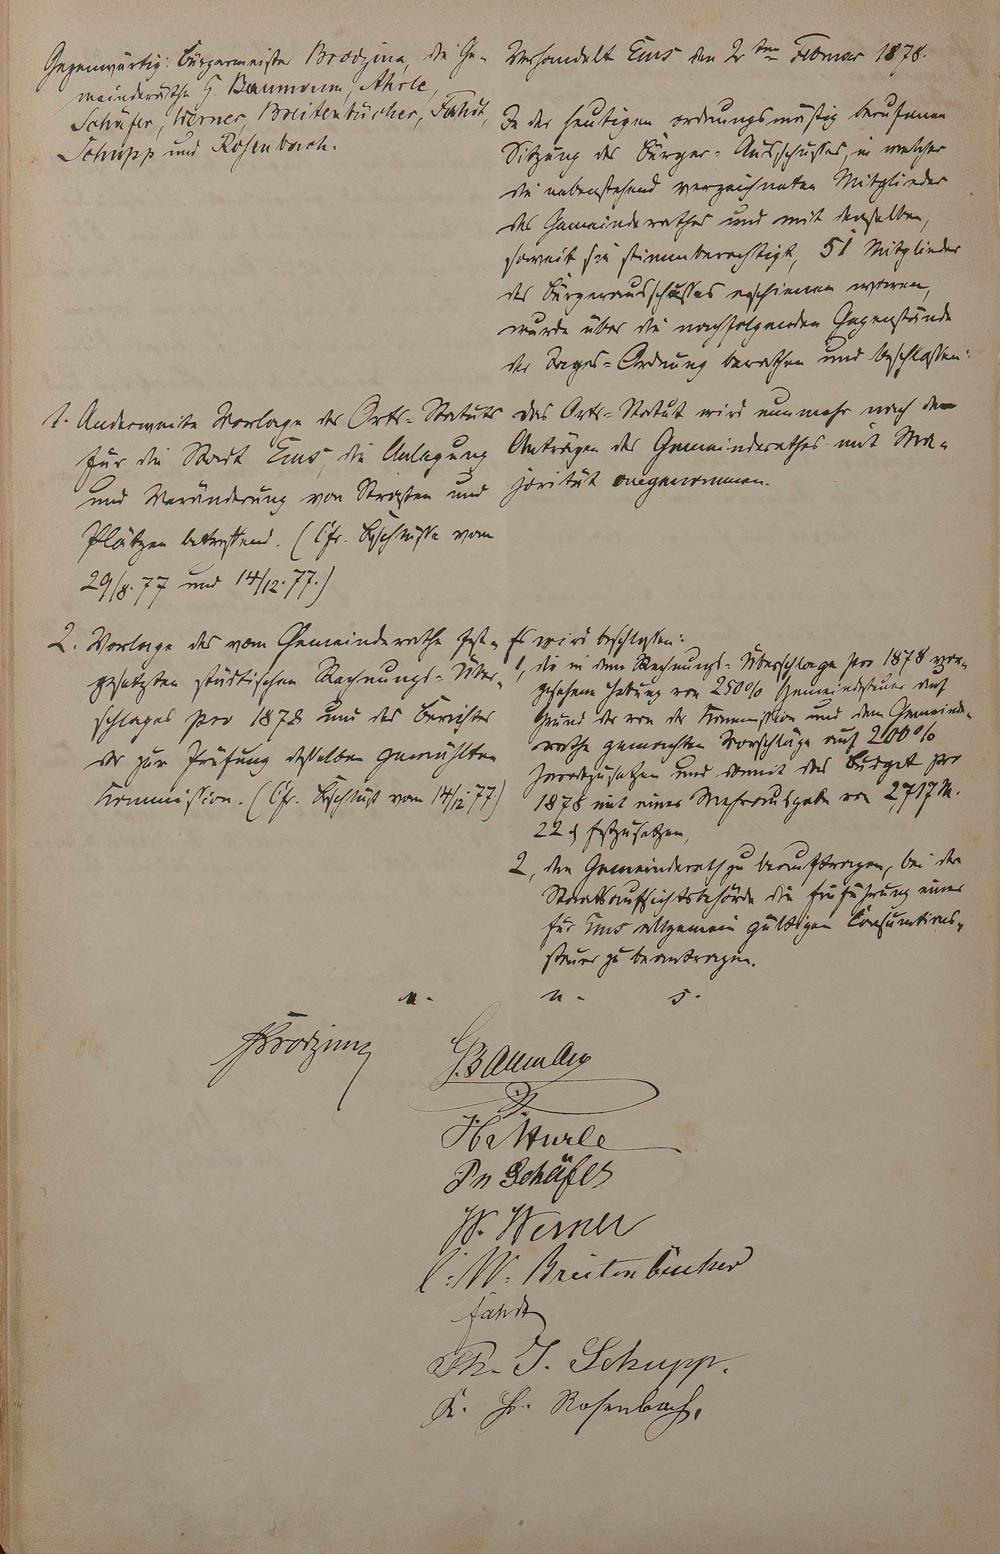 Gegenwärtig: Bürgermeister Brodzina, die Ge-
meinderäthe G. Baumann, Ahrle,
Schäfer, Werner, Breitenbücher, Fahdt,
Schupp und Rosenbach.
Verhandelt Ems den 2ten Februar 1878.
In der heutigen ordnungsmäßig berufenen
Sitzung des Bürger-Ausschusses, in welcher
die nebenstehend verzeichneten Mitglieder
des Gemeinderathes und mit denselben,
soweit sie stimmberechtigt, 51 Mitglieder
des Bürgerausschusses erschienen waren,
wurde über die nachfolgenden Gegenstände
der Tages-Ordnung berathen und beschlossen:
1. Anderweite Vorlage des Orts-Statuts
für die Stadt Ems, die Anlegung
und Veränderung von Straßen und
Plätzen betreffend. (Cfr. Beschlüsse vom
29/8.77 und 14/12.77.)
Das Orts-Statut wird nunmehr nach den
Anträgen des Gemeinderathes mit Ma-
jorität angenommen.
2. Vorlage des vom Gemeinderathe fest-
gesetzten städtischen Rechnungs-Über-
schlages pro 1878 und des Berichtes
der zur Prüfung desselben gewählten
Kommission. (Cfr. Beschluß vom 14/12.77)
Es wird beschlossen:
1, die in dem Rechnungs-Überschlage pro 1878 vor-
gesehene Hebung von 250% Gemeindesteuer auf
Grund der von der Kommission und dem Gemeinde-
rathe gemachten Vorschläge auf 200%
herabzusetzen und somit das Budget pro
1878 mit einer Mehrausgabe von 2717 M.
22 ₰ festzusetzen,
2, den Gemeinderath zu beauftragen, bei der
Staatsaufsichtsbehörde die Einführung einer
für Ems allgemein gültigen Consumtions-
steuer zu beantragen.
u. u. s.
Brodzina
G. Baumann
Schäfer
W. Werner
C. W. Breitenbücher
Fahdt
Th. J. Schupp.
K. H. Rosenbach.